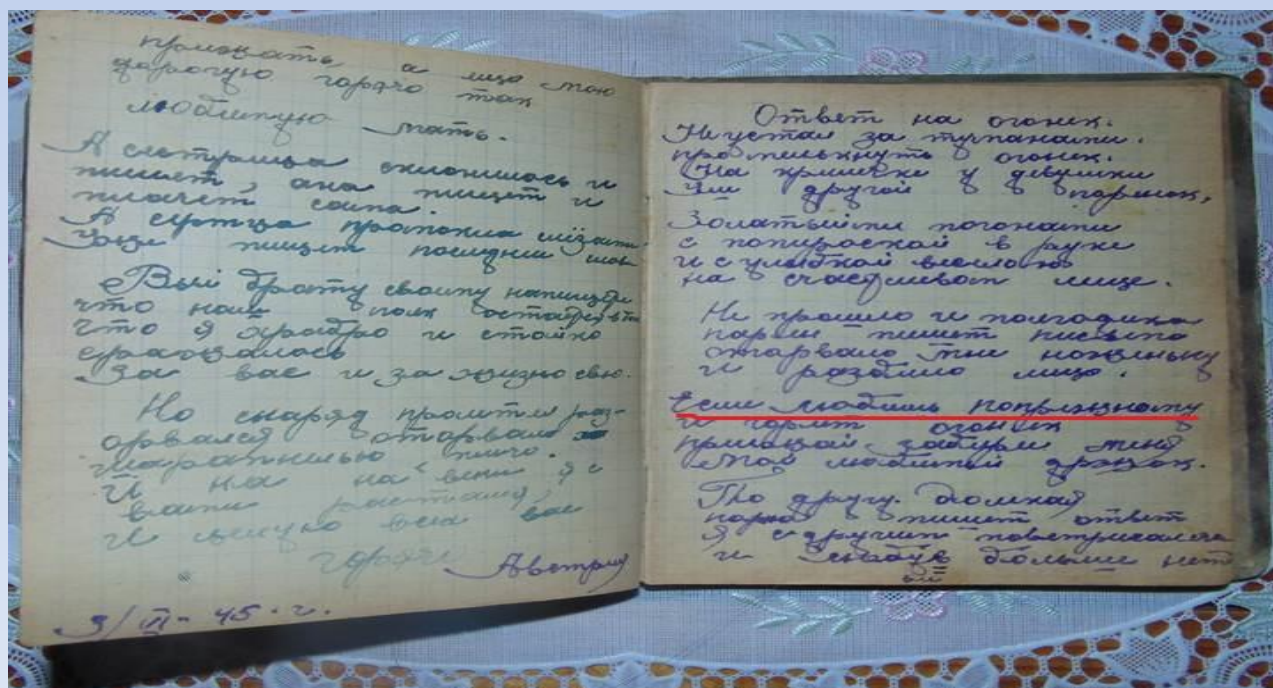 промокать а лицо мою
дорогую горячо так
любимую мать.
А сестрица склонилась и
пишет, она пишет и
плачет сама.
А сертца пропокна слёзами
Уще пишет последнии слов
Вый брату своиму напишите
что наш полк остаётся в
что я храбро и стойко
сражалась
За вас и за жизнь свю.
Но снаряд пролетел раз-
орвался отарвал
мне плечо.
И на веки я с
вами растался,
И целую всех вас
горячо
Австрия
3/II-45 г.
Ответ на огонек.
Неустал за тупанами.
промелькнуть огонек.
На крылечке у девушки
Уш другой паринок,
Золатыйми погонами
с попироской в руке
и с улыбкой веслою
на счасливом лице.
Не прошло и полгодика
парни пишет письмо
отарвало мне ноженьку
и разбило лицо.
Если любишь попрежнаму
и горит огонек
приижай забири меня
мой любимый дружок.
По другу далкая
парню пишет ответ
Я с другим повстричалася
и больше нет